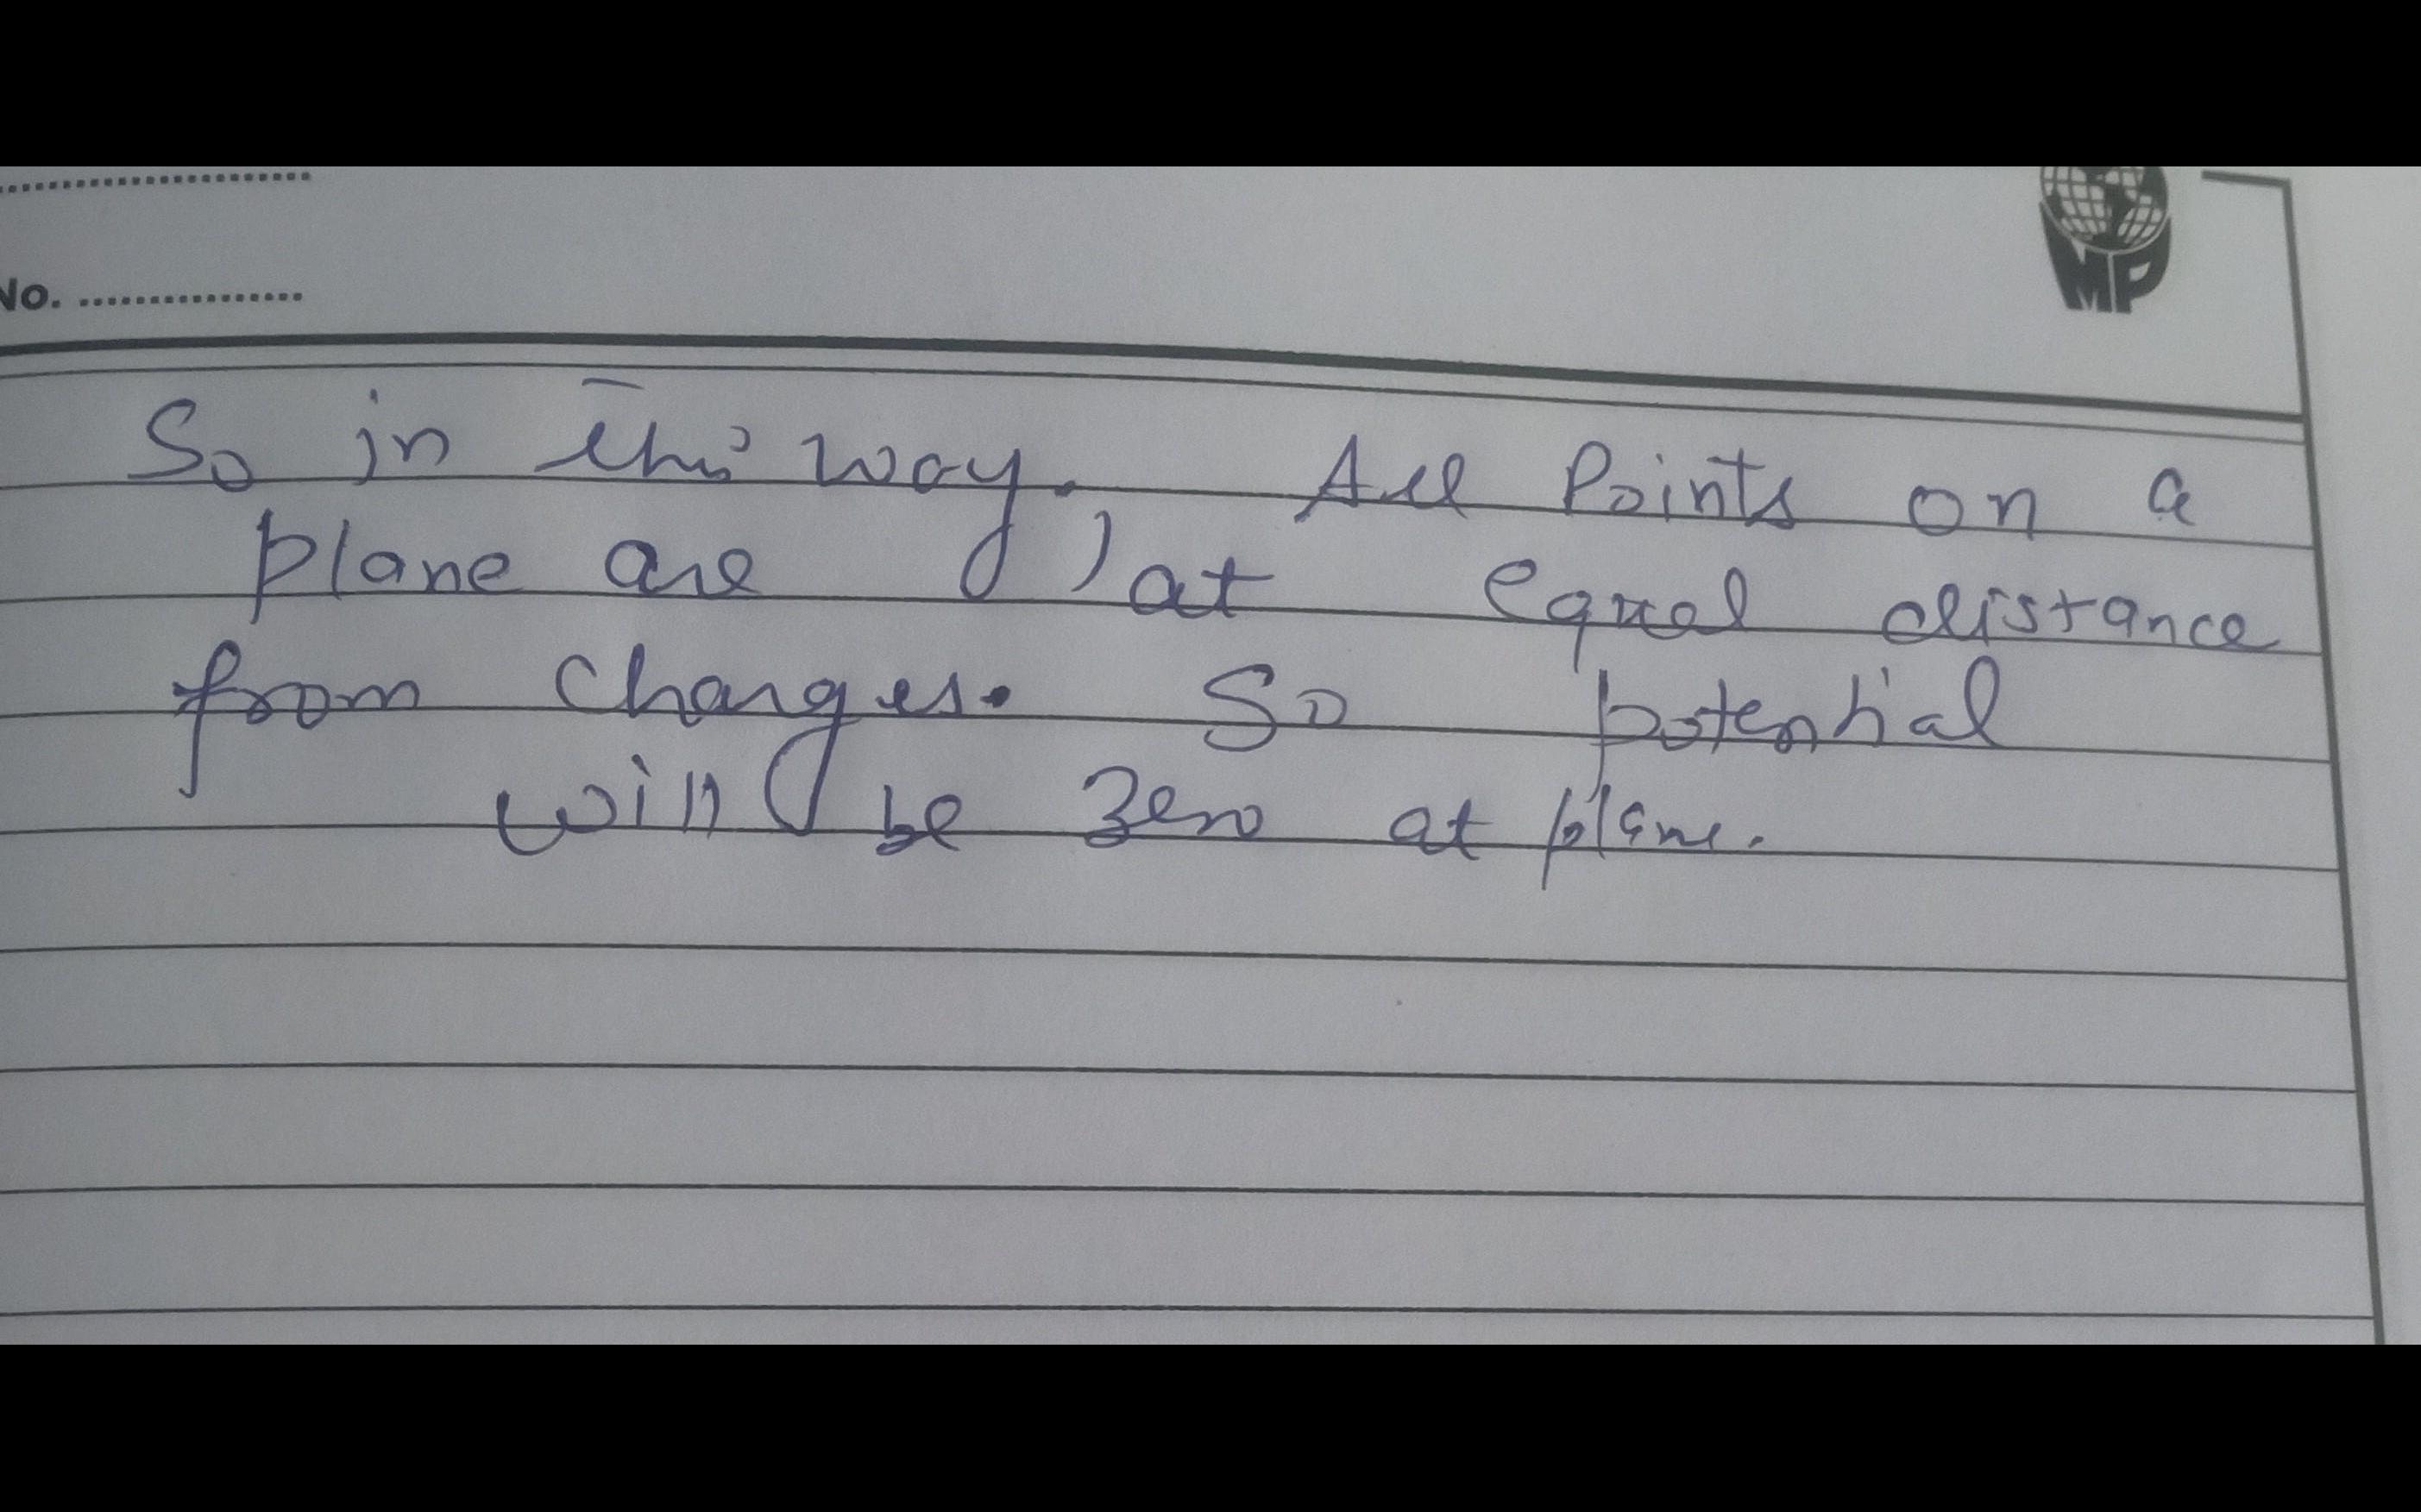 No. ................
MP
So in this way. All Points on a
plane are, at equal distance
from charges. So potential
will be zero at plane.